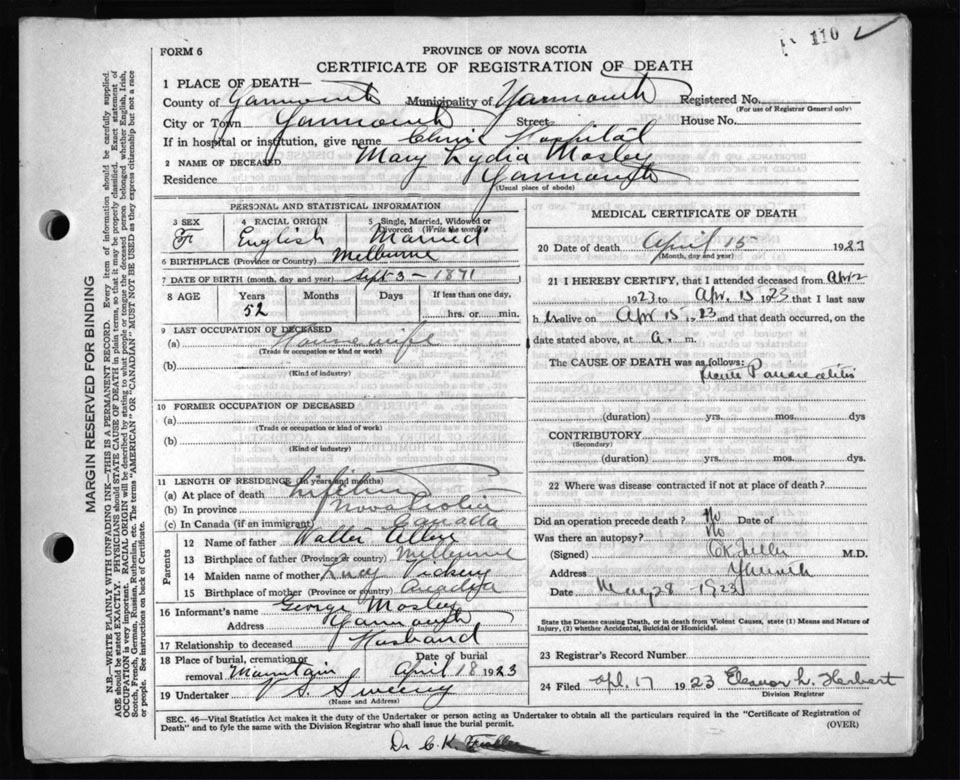 110
FORM 6
PROVINCE OF NOVA SCOTIA
CERTIFICATE OF REGISTRATION OF DEATH
1 PLACE OF DEATH—
County of Yarmouth Municipality of Yarmouth Registered No.
(For use of Registrar General only)
City or Town Yarmouth Street House No.
If in hospital or institution, give name Clinic Hospital
2 NAME OF DECEASED Mary Lydia Mosley
Residence Yarmouth
(Usual place of abode)
PERSONAL AND STATISTICAL INFORMATION
3 SEX 4 RACIAL ORIGIN 5 Single, Married, Widowed or Divorced (Write the word)
F English Married
6 BIRTHPLACE (Province or Country) Melbourne
7 DATE OF BIRTH (month, day and year) Sept 3 - 1871
8 AGE Years Months Days If less than one day,
52 hrs. or min.
9 LAST OCCUPATION OF DECEASED
(a) Housewife
(Trade or occupation or kind or work)
(b)
(Kind of industry)
10 FORMER OCCUPATION OF DECEASED
(a)
(Trade or occupation or kind of work)
(b)
(Kind of industry)
11 LENGTH OF RESIDENCE (In years and months)
(a) At place of death Lifetime
(b) In province Nova Scotia
(c) In Canada (if an immigrant) Canada
Parents
12 Name of father Walter Allen
13 Birthplace of father (Province or country) Melbourne
14 Maiden name of mother Lucy Vickery
15 Birthplace of mother (Province or country)
16 Informant's name George Mosley
Address Yarmouth
17 Relationship to deceased Husband
18 Place of burial, cremation or removal Date of burial
April 18 1923
19 Undertaker S. Sweeny
(Name and Address)
MEDICAL CERTIFICATE OF DEATH
20 Date of death April 15 1923
(Month, day and year)
21 I HEREBY CERTIFY, that I attended deceased from Apr 2
1923 to Apr. 15 1923 that I last saw
her alive on Apr 15 1923 and that death occurred, on the
date stated above, at a. m.
The CAUSE OF DEATH was as follows:
Acute Pancreatitis
(duration) yrs. mos. dys
CONTRIBUTORY
(Secondary)
(duration) yrs. mos. dys.
22 Where was disease contracted if not at place of death?
Did an operation precede death? No Date of
Was there an autopsy? No
(Signed) C K Fuller M.D.
Address Yarmouth
Date May 28 1923
State the Disease causing Death, or in death from Violent Causes, state (1) Means and Nature of Injury, (2) whether Accidental, Suicidal or Homicidal.
23 Registrar's Record Number
24 Filed Apl. 17 1923 Eleanor L. Herbert
Division Registrar
SEC. 46—Vital Statistics Act makes it the duty of the Undertaker or person acting as Undertaker to obtain all the particulars required in the "Certificate of Registration of
Death" and to fyle the same with the Division Registrar who shall issue the burial permit. (OVER)
Dr C. K. Fuller
MARGIN RESERVED FOR BINDING
N.B.—WRITE PLAINLY WITH UNFADING INK—THIS IS A PERMANENT RECORD. Every item of information should be carefully supplied.
AGE should be stated EXACTLY. PHYSICIANS should STATE CAUSE OF DEATH in plain terms, so that it may be properly classified. Exact statement of
OCCUPATION is very important. RACIAL ORIGIN will be described by stating to what people or tongue the deceased person belonged whether English, Irish,
Scotch, French, German, Russian, Ruthenian, etc. The terms "AMERICAN" OR "CANADIAN" MUST NOT BE USED as they express citizenship but not a race
or people. See instructions on back of Certificate.